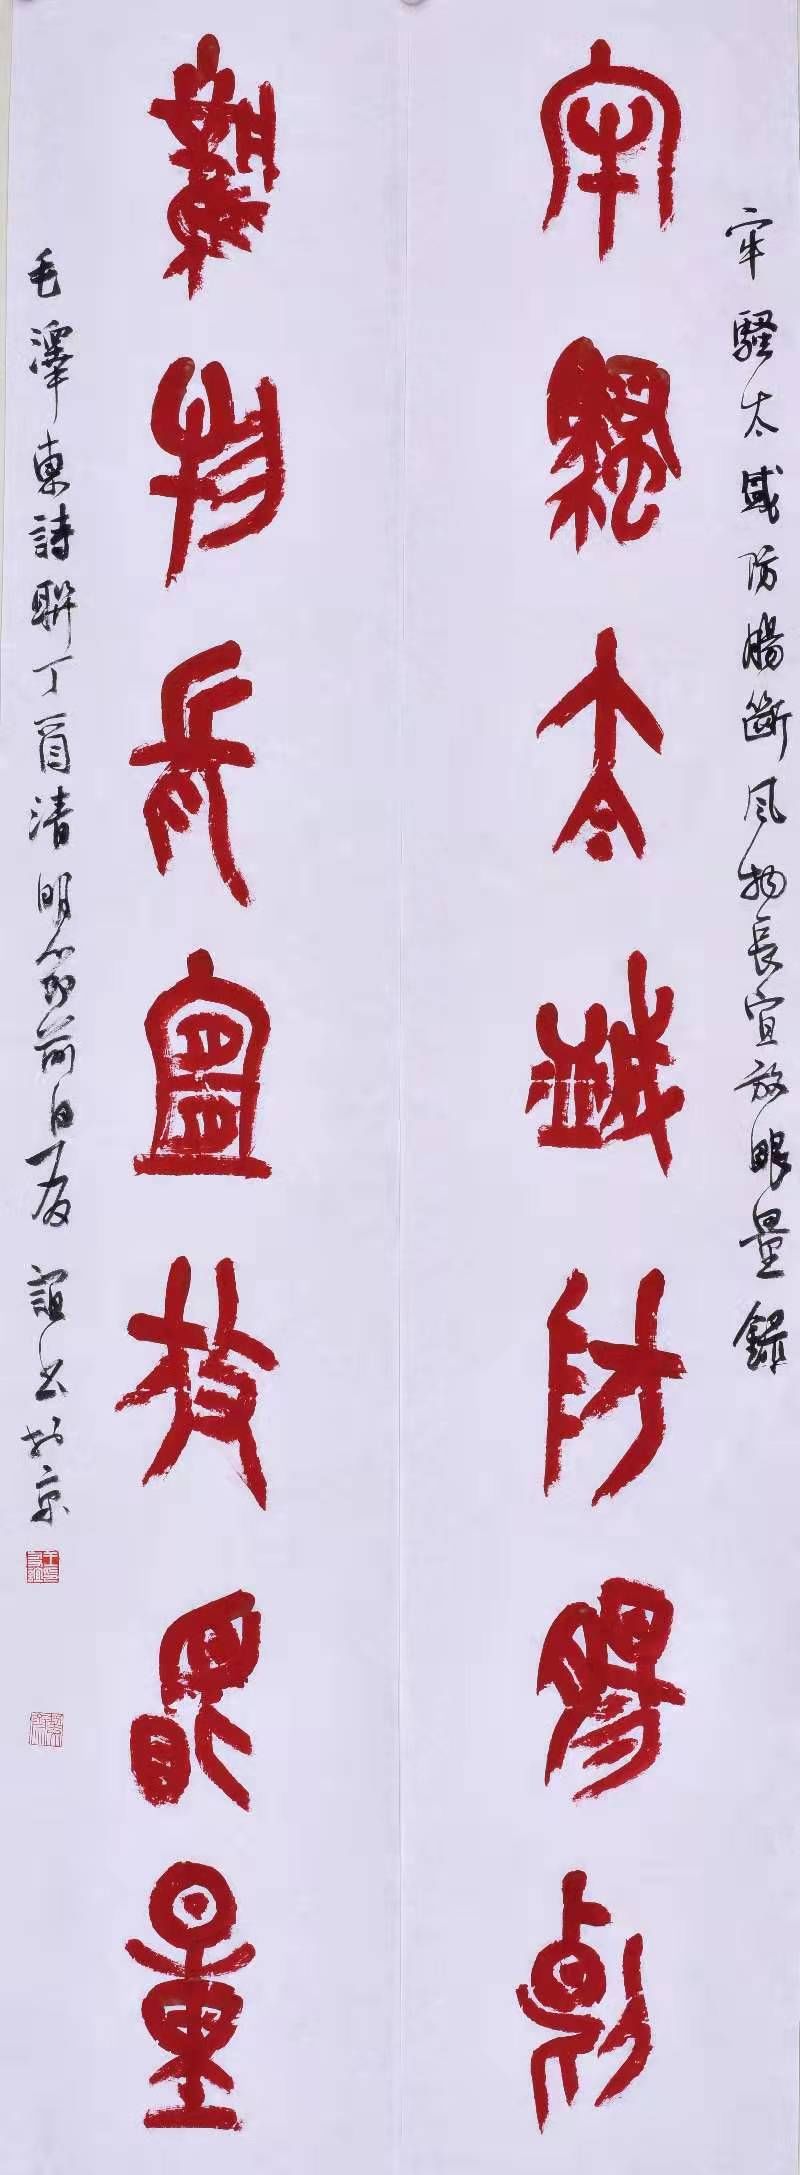 牢騷太盛防腸斷風物長宜放眼量錄
牢騷太盛防腸斷
風物長宜放眼量
毛澤東詩聯丁酉清明節前日王友誼書於京